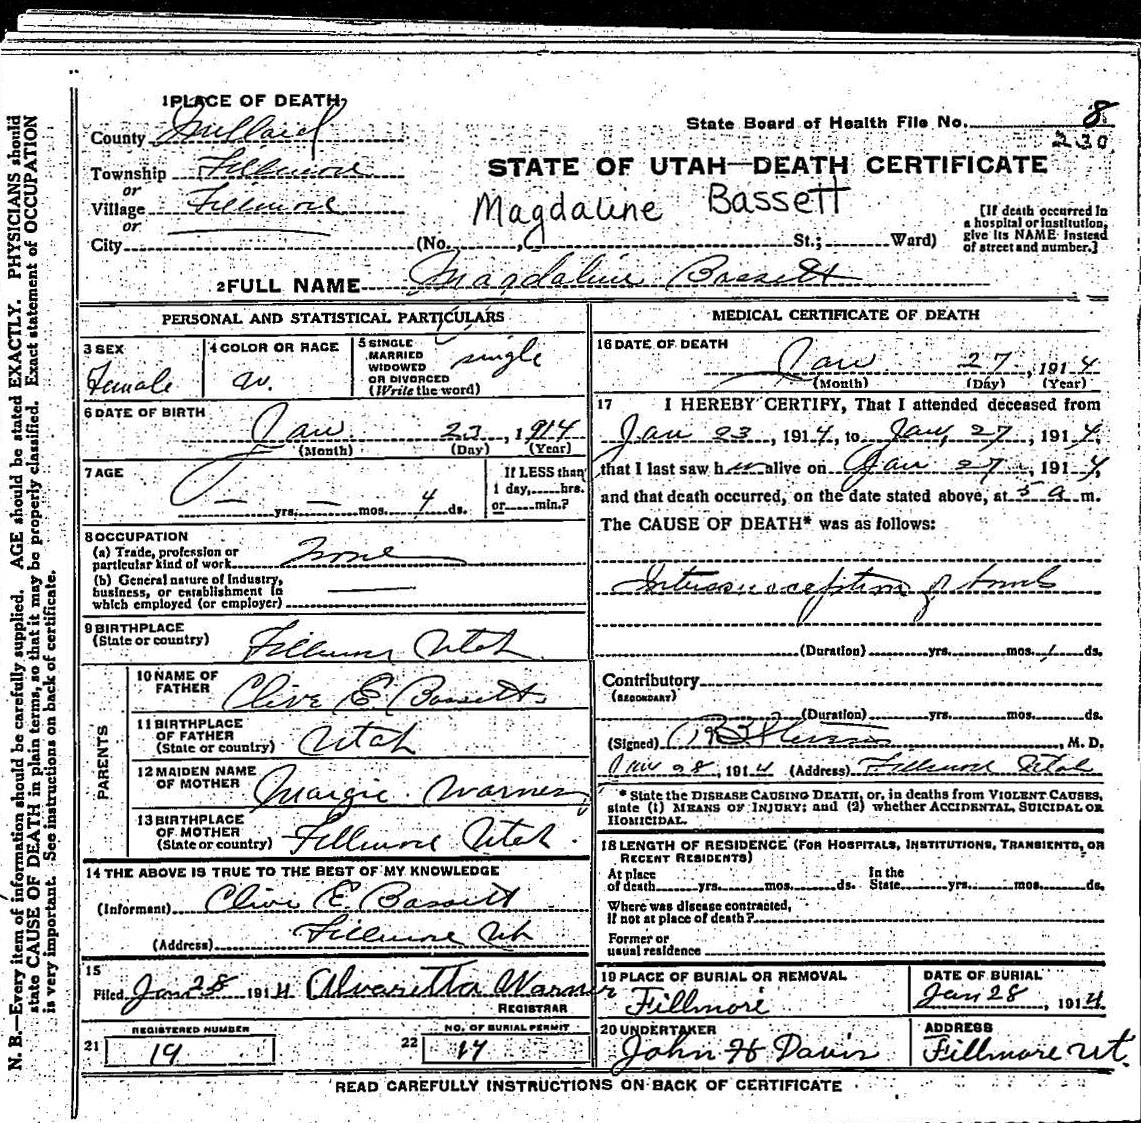 1 PLACE OF DEATH
County Millard
State Board of Health File No. 8
230
Township Fillmore
or
Village Fillmore
or
City
STATE OF UTAH—DEATH CERTIFICATE
Magdaline Bassett
(No. St.; Ward)
[If death occurred in
a hospital or institution,
give its NAME instead
of street and number.]
2 FULL NAME Magdaline Bassett
PERSONAL AND STATISTICAL PARTICULARS
3 SEX
Female
4 COLOR OR RACE
W.
5 SINGLE
MARRIED
WIDOWED
OR DIVORCED
(Write the word)
single
6 DATE OF BIRTH
Jan. 23, 1914
(Month) (Day) (Year)
7 AGE
— yrs. — mos. 4 ds.
If LESS than
1 day, hrs.
or min.?
8 OCCUPATION
(a) Trade, profession or
particular kind of work None
(b) General nature of Industry,
business, or establishment in
which employed (or employer) —
9 BIRTHPLACE
(State or country) Fillmore Utah
PARENTS
10 NAME OF
FATHER Clive E Bassett
11 BIRTHPLACE
OF FATHER
(State or country) Utah
12 MAIDEN NAME
OF MOTHER Margie Warner
13 BIRTHPLACE
OF MOTHER
(State or country) Fillmore Utah.
14 THE ABOVE IS TRUE TO THE BEST OF MY KNOWLEDGE
(Informant) Clive E. Bassett
(Address) Fillmore Ut
15
Filed Jan 28 1914 Alvaretta Warner
REGISTRAR
REGISTERED NUMBER
21 19
NO. OF BURIAL PERMIT
22 17
MEDICAL CERTIFICATE OF DEATH
16 DATE OF DEATH
Jan 27, 1914
(Month) (Day) (Year)
17 I HEREBY CERTIFY, That I attended deceased from
Jan 23, 1914, to Jan, 27, 1914,
that I last saw her alive on Jan 27, 1914,
and that death occurred, on the date stated above, at 5 a m.
The CAUSE OF DEATH* was as follows:
Intussusception of
(Duration) yrs. mos. 1 ds.
Contributory
(SECONDARY)
(Duration) yrs. mos. ds.
(Signed) , M. D.
Jan 28, 1914 (Address) Fillmore Utah
* State the DISEASE CAUSING DEATH, or, in deaths from VIOLENT CAUSES,
state (1) MEANS OF INJURY; and (2) whether ACCIDENTAL, SUICIDAL OR
HOMICIDAL.
18 LENGTH OF RESIDENCE (FOR HOSPITALS, INSTITUTIONS, TRANSIENTS, OR
RECENT RESIDENTS)
At place
of death yrs. mos. ds.
In the
State yrs. mos. ds.
Where was disease contracted,
if not at place of death?
Former or
usual residence
19 PLACE OF BURIAL OR REMOVAL
Fillmore
DATE OF BURIAL
Jan 28, 1914
20 UNDERTAKER
John H Davis
ADDRESS
Fillmore Ut.
READ CAREFULLY INSTRUCTIONS ON BACK OF CERTIFICATE
N. B.—Every item of information should be carefully supplied. AGE should be stated EXACTLY. PHYSICIANS should
state CAUSE OF DEATH in plain terms, so that it may be properly classified. Exact statement of OCCUPATION
is very important. See instructions on back of certificate.